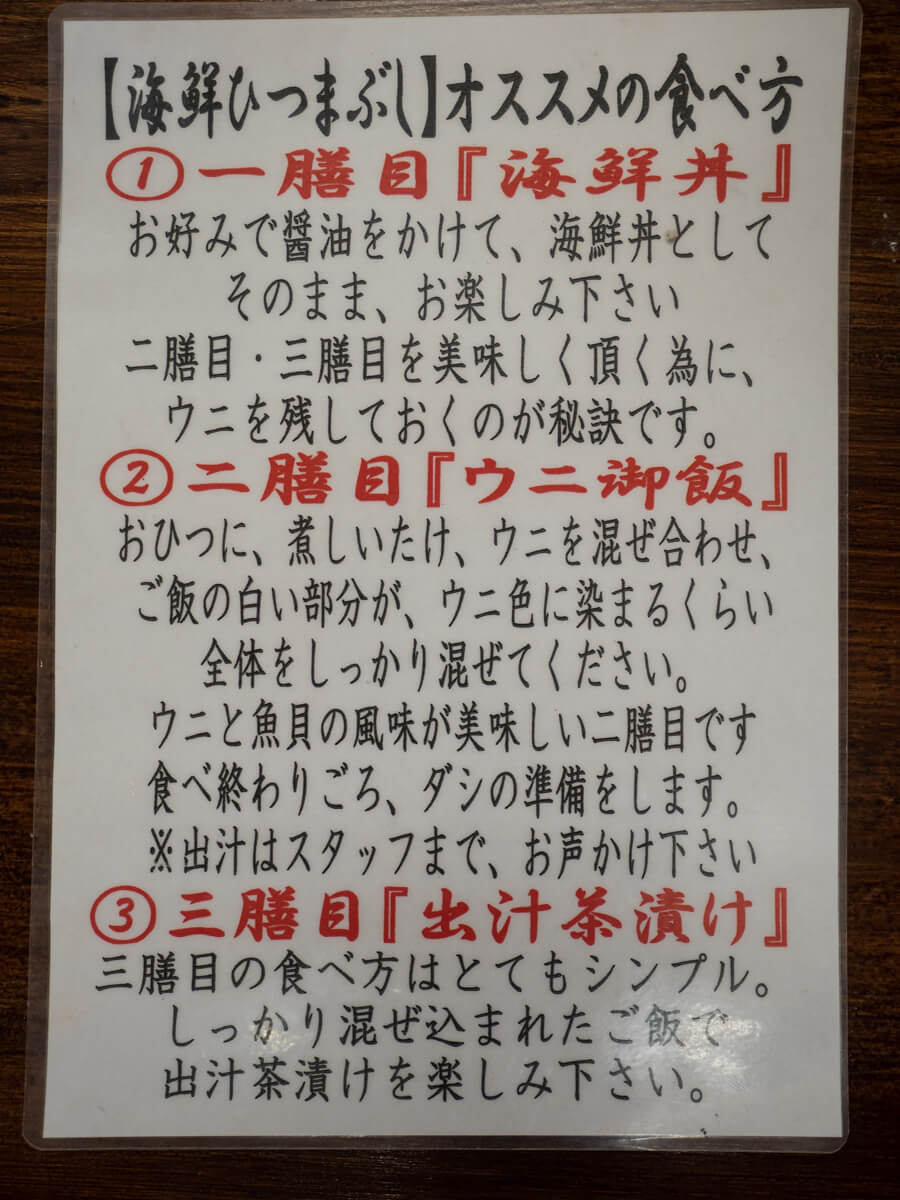 【海鮮ひつまぶし】オススメの食べ方
①一膳目『海鮮丼』
お好みで醤油をかけて、海鮮丼として
そのまま、お楽しみ下さい
二膳目・三膳目を美味しく頂く為に、
ウニを残しておくのが秘訣です。
②二膳目『ウニ御飯』
おひつに、煮しいたけ、ウニを混ぜ合わせ、
ご飯の白い部分が、ウニ色に染まるくらい
全体をしっかり混ぜてください。
ウニと魚貝の風味が美味しい二膳目です
食べ終わりごろ、ダシの準備をします。
※出汁はスタッフまで、お声かけ下さい
③三膳目『出汁茶漬け』
三膳目の食べ方はとてもシンプル。
しっかり混ぜ込まれたご飯で
出汁茶漬けを楽しみ下さい。